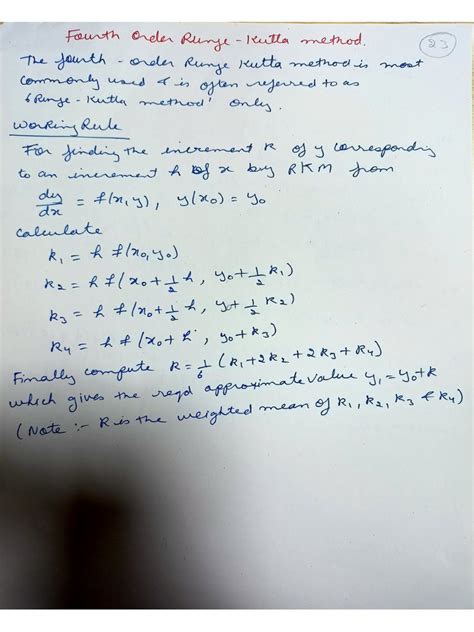 Fourth Order Runge-Kutta method.
23
The fourth-order Runge Kutta method is most
commonly used & is often referred to as
'Runge-Kutta method' only.
Working Rule
For finding the increment k of y corresponding
to an increment h of x by RKM from
dy/dx = f(x,y), y(x₀) = y₀
calculate
k₁ = h f(x₀,y₀)
k₂ = h f(x₀+½h, y₀+½k₁)
k₃ = h f(x₀+½h, y+½k₂)
k₄ = h f(x₀+h, y₀+k₃)
Finally compute k = 1/6 (k₁+2k₂+2k₃+k₄)
which gives the reqd approximate value y₁=y₀+k
(Note :- k is the weighted mean of k₁, k₂, k₃ & k₄)